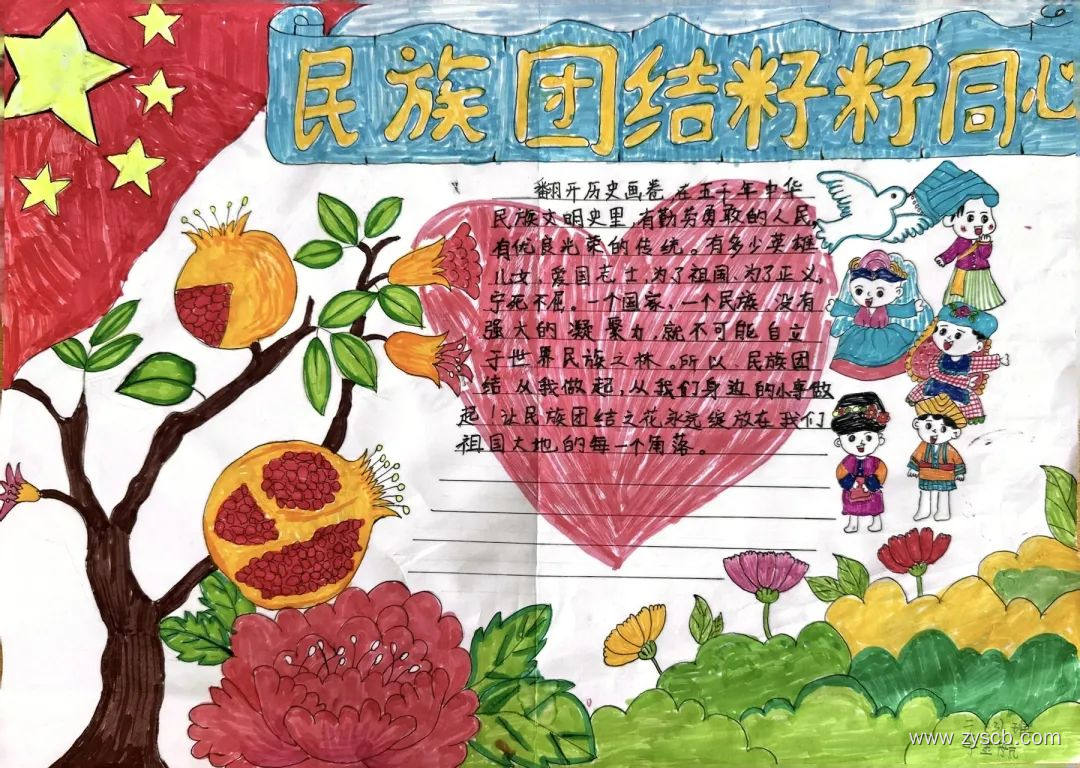 民族团结籽籽同心
翻开历史画卷 在五千年中华
民族文明史里,有勤劳勇敢的人民,
有优良光荣的传统。有多少英雄
儿女,爱国志士,为了祖国、为了正义,
宁死不屈。一个国家,一个民族 没有
强大的凝聚力,就不可能自立
于世界民族之林。所以 民族团
结 从我做起,从我们身边的小事做
起!让民族团结之花永远绽放在我们
祖国大地的每一个角落。
www.zyscb.com